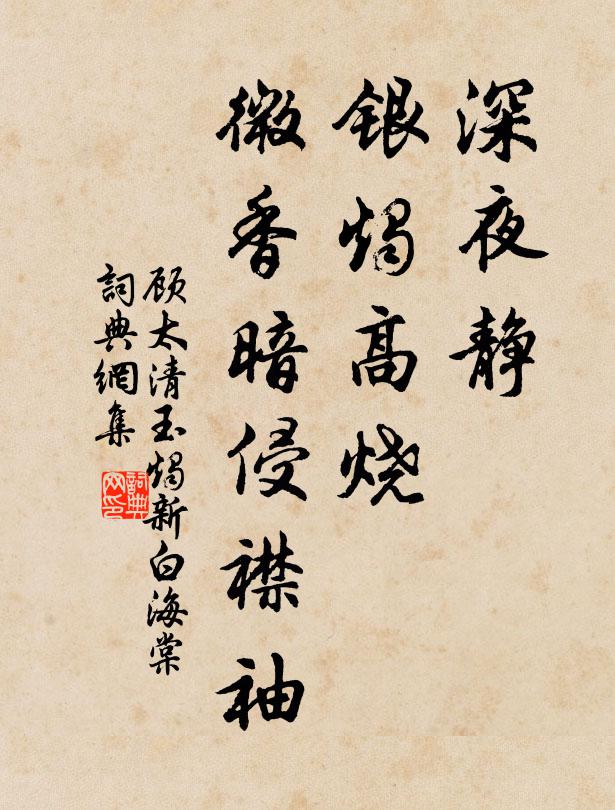 深夜静
银烛高烧
微香暗侵襟袖
顾太清玉烛新白海棠
詞典網集
詞典网印